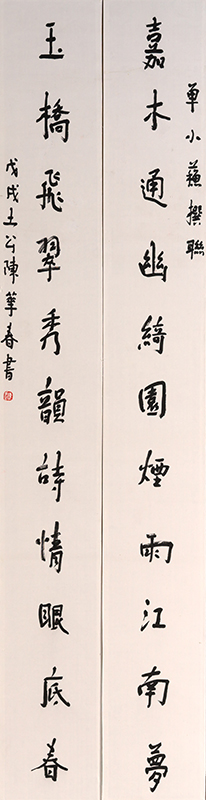 單小撰聯
嘉木通幽綺園煙雨江南夢
玉橋飛翠秀韻詩情眼底春
戊戌陳華春書